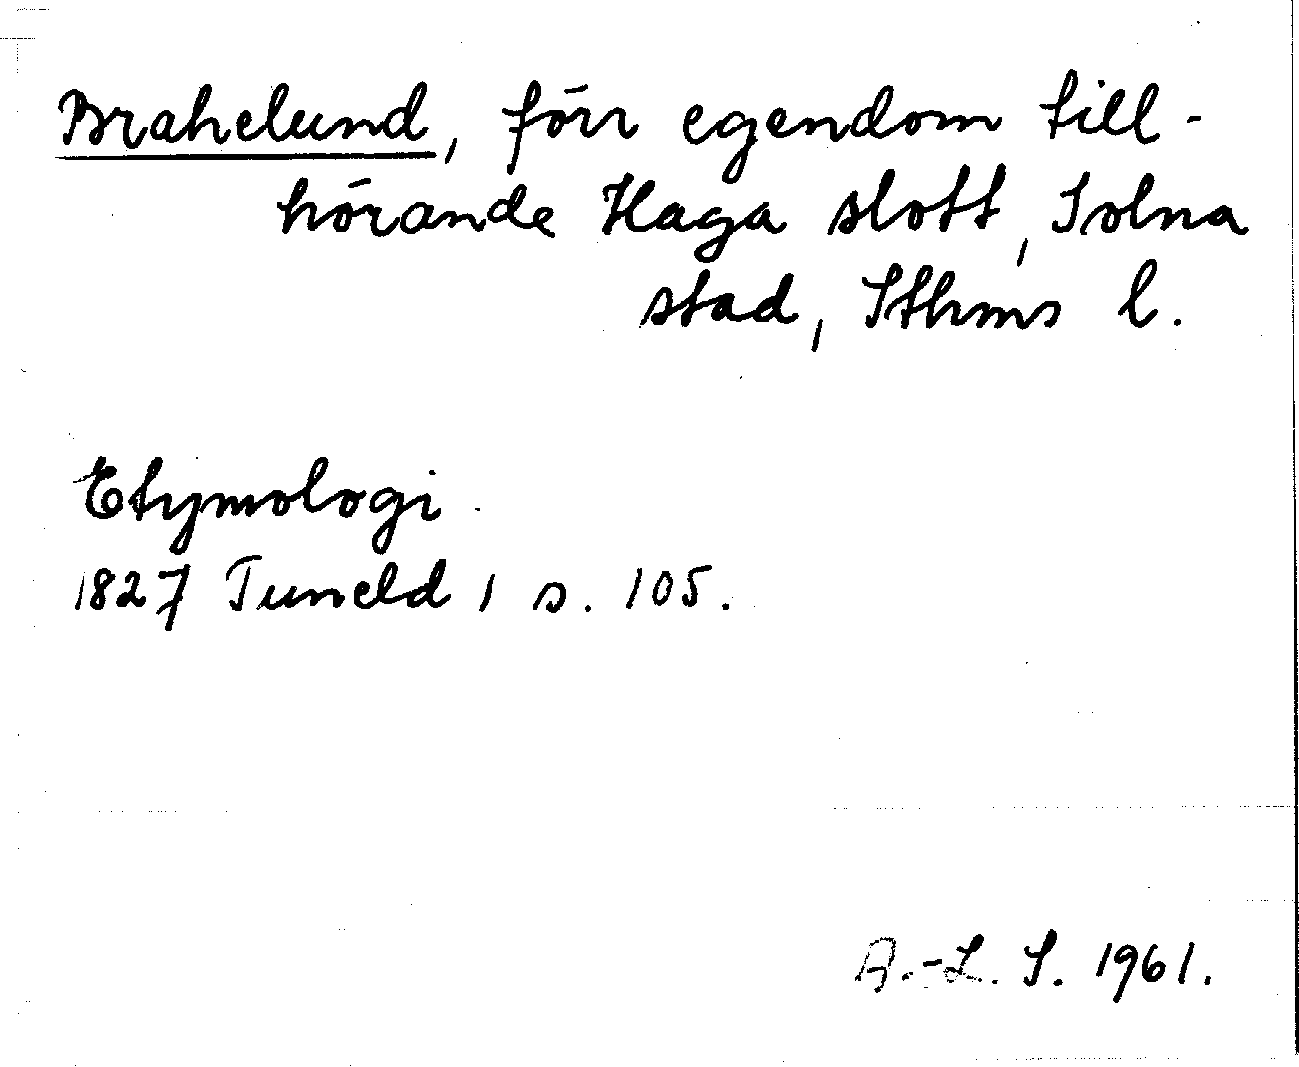 Brahelund, förr egendom till-
hörande Haga slott, Solna
stad, Sthms l.
Etymologi.
1827 Tuneld 1 s. 105.
A.-L. S. 1961.